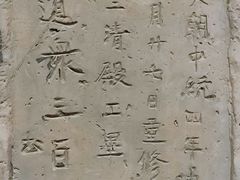 朝中統四年
月廿七日重修
三清殿工畢
道衆三百
公